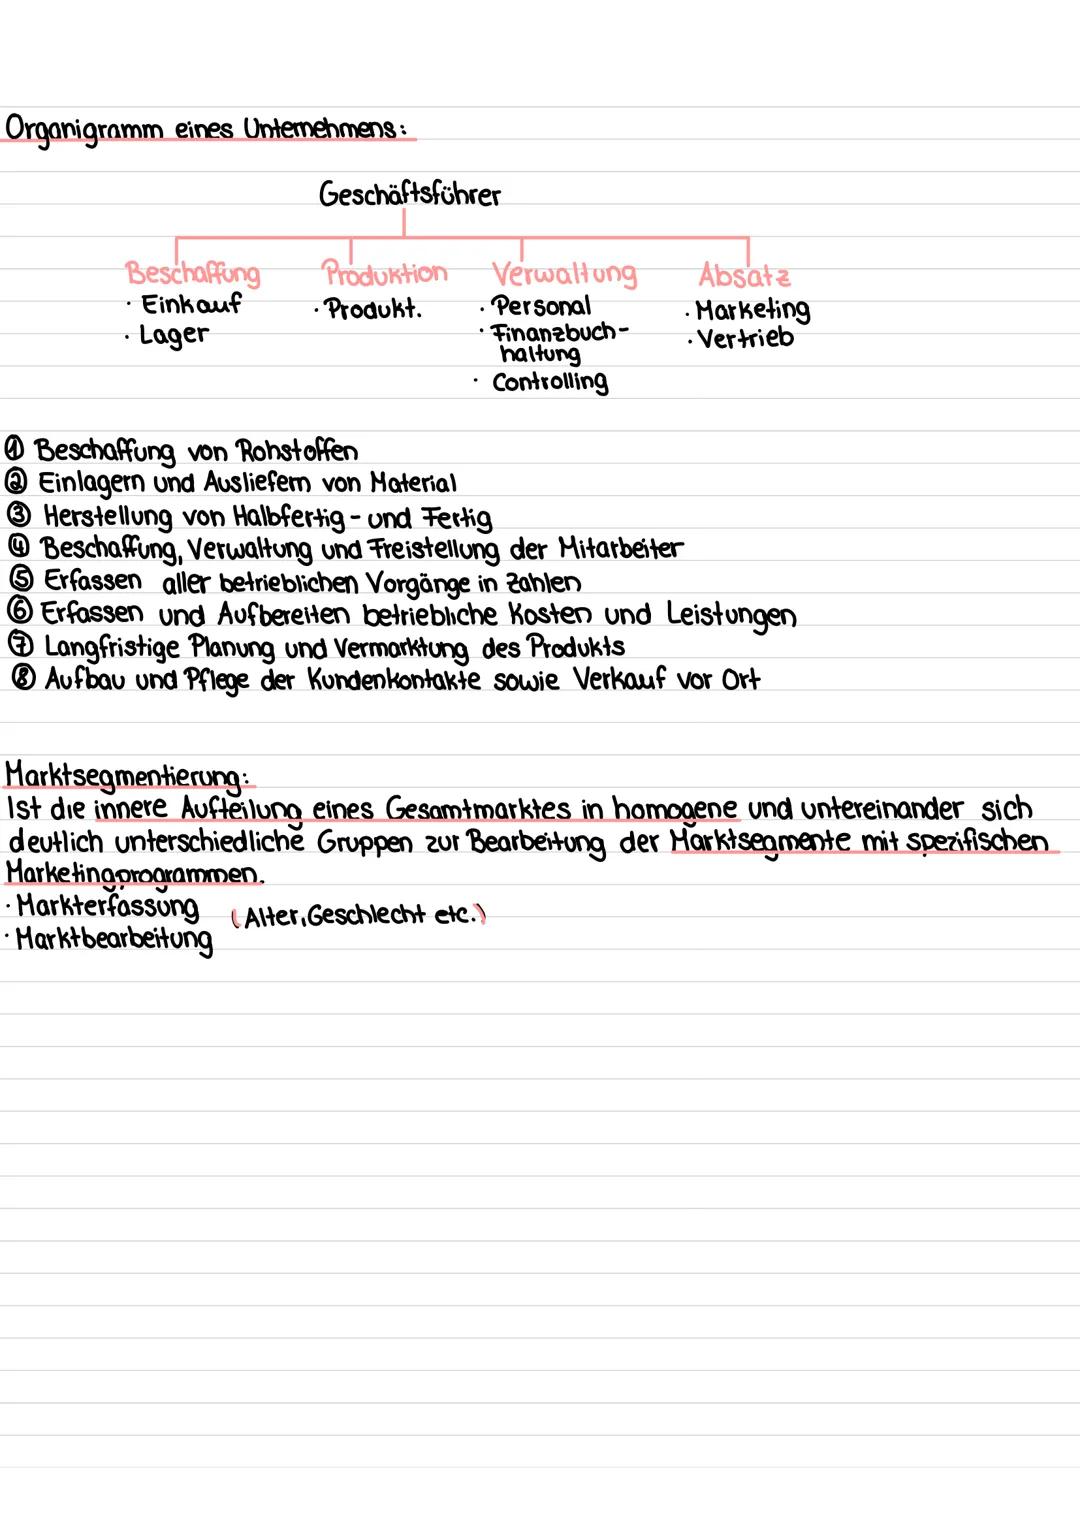 Organigramm eines Unternehmens:
Geschäftsführer
Beschaffung Produktion Verwaltung Absatz
· Einkauf · Produkt. · Personal · Marketing
· Lager · Finanzbuch- · Vertrieb
haltung
· Controlling
① Beschaffung von Rohstoffen
② Einlagern und Ausliefern von Material
③ Herstellung von Halbfertig- und Fertig
④ Beschaffung, Verwaltung und Freistellung der Mitarbeiter
⑤ Erfassen aller betrieblichen Vorgänge in Zahlen
⑥ Erfassen und Aufbereiten betriebliche Kosten und Leistungen
⑦ Langfristige Planung und Vermarktung des Produkts
⑧ Aufbau und Pflege der Kundenkontakte sowie Verkauf vor Ort
Marktsegmentierung:
Ist die innere Aufteilung eines Gesamtmarktes in homogene und untereinander sich
deutlich unterschiedliche Gruppen zur Bearbeitung der Marktsegmente mit spezifischen
Marketingprogrammen.
· Markterfassung (Alter, Geschlecht etc.)
· Marktbearbeitung